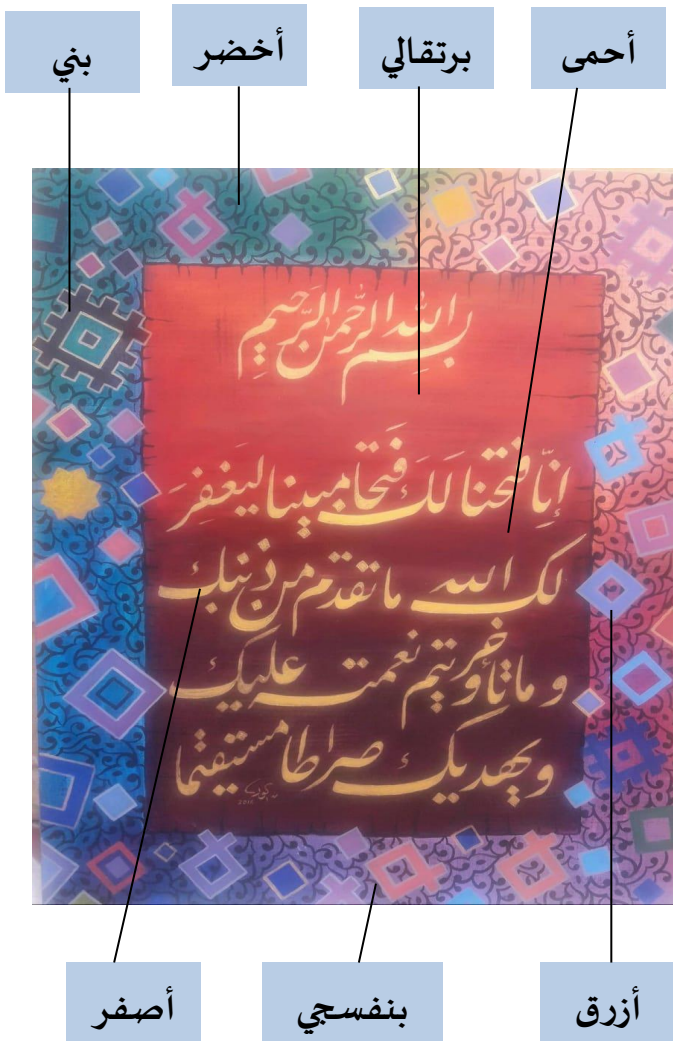 أحمى
برتقالي
أخضر
بني
بسم الله الرحمن الرحيم
إنا فتحنا لك فتحا مبينا ليغفر
لك الله ما تقدم من ذنبك
و ما تأخر ويتم نعمته عليك
ويهديك صراطا مستقيما
أزرق
بنفسجي
أصفر